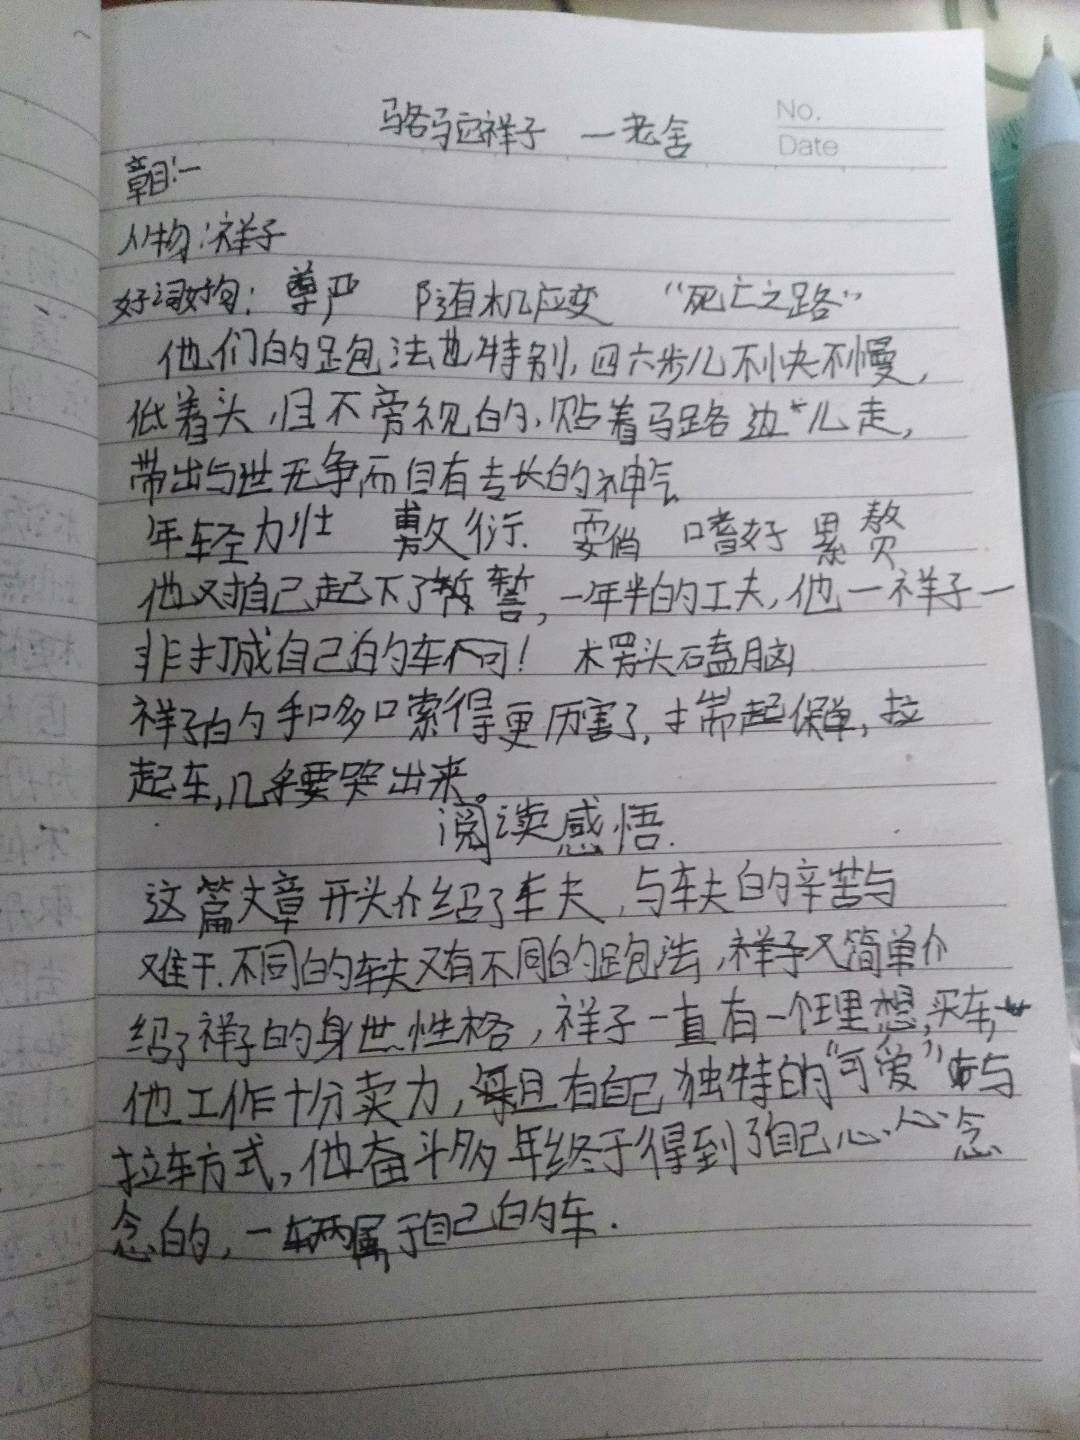 骆驼祥子 一老舍
No.
Date
章目:一
人物:祥子
好词好句: 尊严 随机应变 “死亡之路”
他们的跑法也特别,四六步儿不快不慢,
低着头,目不旁视的,贴着马路边儿走,
带出与世无争而自有专长的神气
年轻力壮 敷衍. 耍俏 嗜好 累赘
他对自己起下了誓,一年半的工夫,他一祥子一
非打成自己的车不可! 木愣头磕脑
祥子的手哆嗦得更厉害了,揣起保单,拉
起车,几乎要哭出来。
阅读感悟.
这篇文章开头介绍了车夫,与车夫的辛苦与
难干.不同的车夫又有不同的跑法,祥子又简单介
绍了祥子的身世性格,祥子一直有一个理想,买车,
他工作十分卖力,且有自己独特的“可爱”与
拉车方式,他奋斗多年终于得到了自己心心念
念的,一辆属于自己的车.